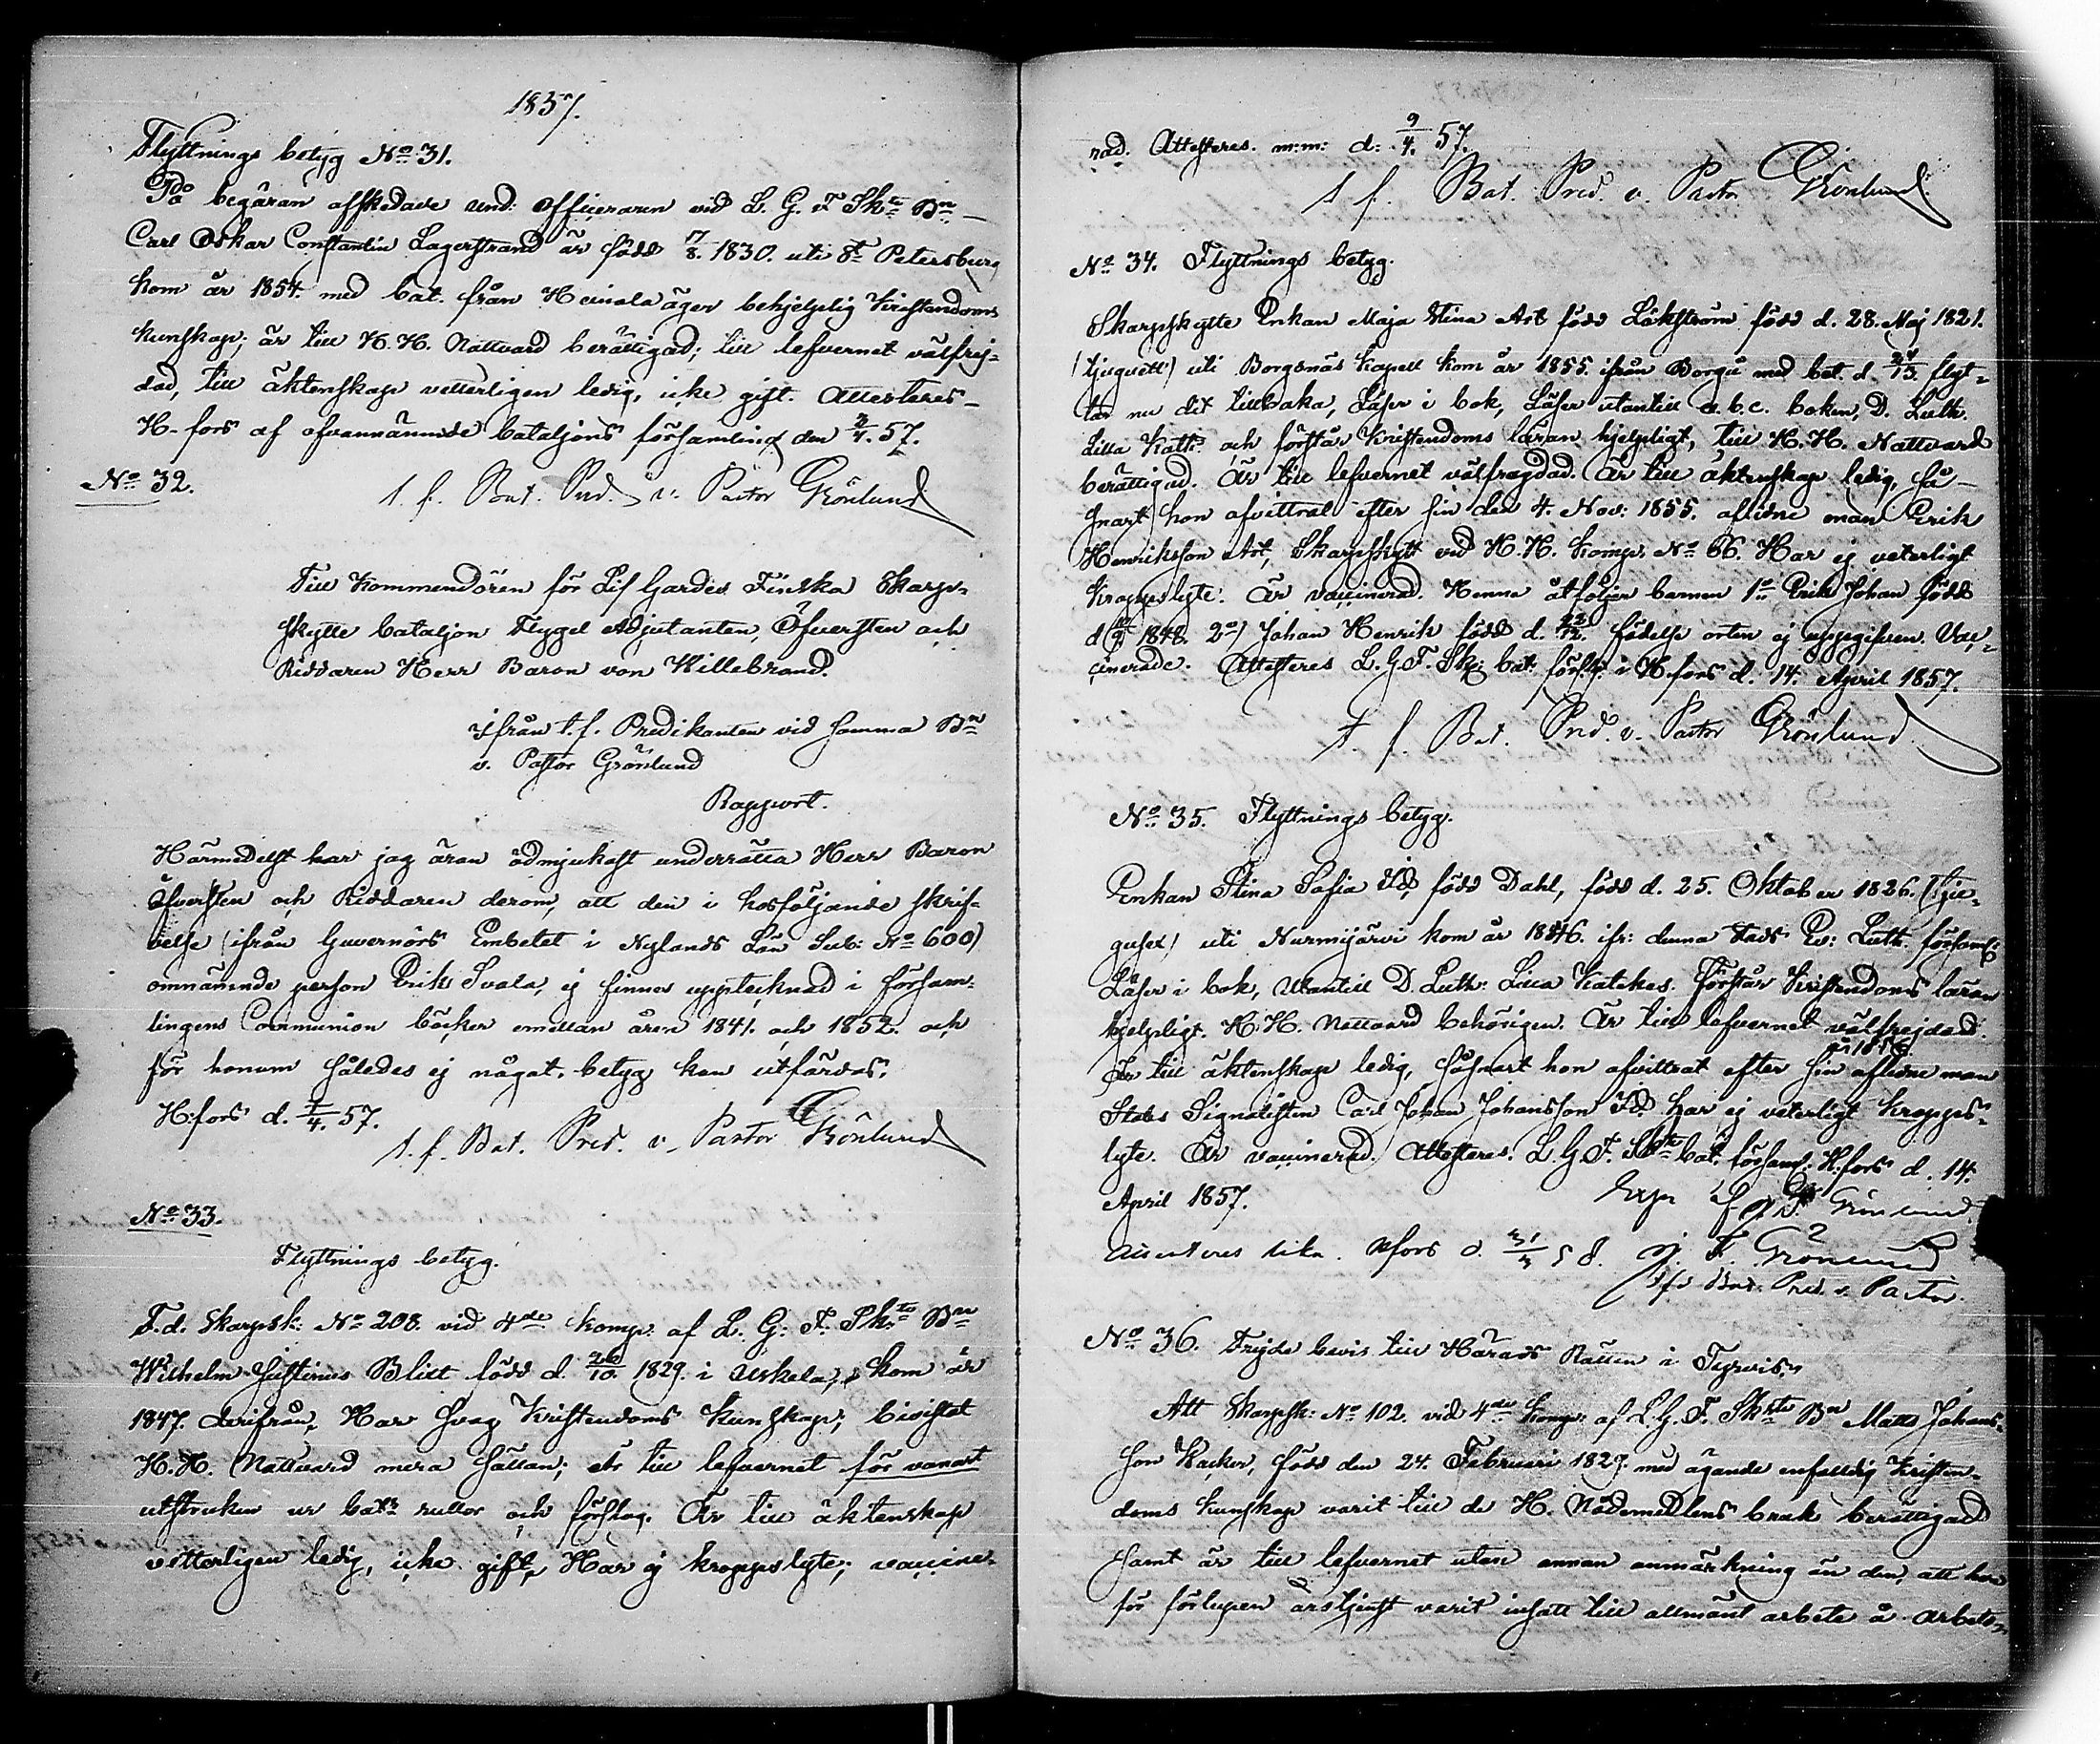 1857.
Flyttnings betyg No 31.
På begäran afskedade und: officeraren vid L. G. F. Sk:te Bn
Carl Oskar Constantin Lagerstrand är född 17/8. 1830. uti St Petersburg
kom år 1854. med bat. från Heinola äger behjelplig Kristendoms
kunskap; är till H. H. Nattvard berättigad; till lefvernet välfrej-
dad, till äktenskap vetterligen ledig, icke gift. Attesteras
H-fors af ofvannämnde bataljons församling den /4. 57.
No 32.
t. f. Bat. Pred. v. Pastor Grönlund
Till Kommendören för Lif Gardes Finska Skarp-
skytte bataljon Flygel Adjutanten, Öfversten och
Riddaren Herr Baron von Willebrand.
ifrån t. f. Predikanten vid samma Bn
v. Pastor Grönlund
Rapport.
Härmedelst har jag äran ödmjukast underrätta Herr Baron
Öfversten och Riddaren derom, att den i hosföljande skrif-
velse (ifrån Guvernörs Embetet i Nylands Län Sub: No 600)
omnämnde person Erik Svala, ej finnes upptecknad i försam-
lingens Communion böcker emellan åren 1841. och 1852. och
för honom således ej något betyg kan utfärdas.
H:fors d. /4. 57.
t. f. Bat. Pred. v. Pastor Grönlund
No 33.
Flyttnings betyg.
F. d. Skarpsk: No 208. vid 4de komp: af L. G: F. Sk:te Bn
Wilhelm Justinus Blitt född d. 26/10. 1829. i Uskela, kom år
1847. derifrån, Har svag Kristendoms kunskap; bivistat
H. H. Nattvard mera sällan; är till lefvernet för vanart
utstruken ur bat:s rullor och förslag. Är till äktenskap
vetterligen ledig, icke gift, Har ej kroppslyte; vaccine-
rad. Attesteras. m: m: d: 9/4. 57.
t. f. Bat. Pred. v. Pastor Grönlund
No 34. Flyttnings betyg.
Skarpskytte Enkan Maja Stina Art född Läkström född d. 28. Maj 1821.
(tjuguett) uti Borgnäs kapell kom år 1855. ifrån Borgå med bet. d. flyt-
tar nu dit tillbaka, Läser i bok, Läser utantill a. b. c. boken, D. Luth.
Lilla Kath: och förstår Kristendoms läran hjelpligt, till H. H. Nattvard
berättigad. Är till lefvernet välfrägdad. Är till äktenskap ledig, så
snart hon afvittrat efter sin den 4. Nov: 1855. aflidne man Erik
Henriksson Art, Skarpskytt vid H. H. komp: No 66. Har ej veterligt
Kroppslyte. Är vaccinerad. Henne åtföljer barnen 1o Erik Johan född
d /9 1848. 2o) Johan Henrik född d. 22/12. födelse orten ej uppgifven. Vac-
cinerade. Attesteras L. G. F. Sk: bat: förs:g: i H.fors d. 14. April 1857.
t. f. Bat. Pred. v. Pastor Grönlund
No 35. Flyttnings betyg.
Enkan Stina Sofia född Dahl, född d. 25. Oktober 1826. (tju-
gusex) uti Nurmijärvi kom år 1846. ifr: denna stads Ev: Luth. församl:
Läser i bok, Utantill D. Luth: Lilla Katekes. Förstår Kristendoms läran
hjelpligt. H. H. Nattvard behörigen. Är till lefvernet välfrejdad.
år 1856.
Är till äktenskap ledig, såsnart hon afvittrat efter sin aflidne man
Stabs Signalisten Carl Johan Johansson har ej veterligt kropps-
lyte. Är vaccinerad. Attesteras. L. G. F. Sk:te bat: församl: H:fors d. 14.
April 1857.
Grönlund
lika. Hfors d. 58. G. F. Grönlund
tf: Bat. Pred. v. Pastor.
No 36. Frejde bevis till Härads Rätten i Tyrvis.
Att Skarpsk: No 102. vid 4de komp: af L. G. F. Sk:te Bn Matts Johans-
son Wacker, född den 24. Februari 1829. med ägande enfaldig Kristen-
doms kunskap varit till de H. Nådemedlens bruk berättigad
samt är till lefvernet utan annan anmärkning än den, att han
för förlupen årstjenst varit insatt till allmänt arbete å arbets-